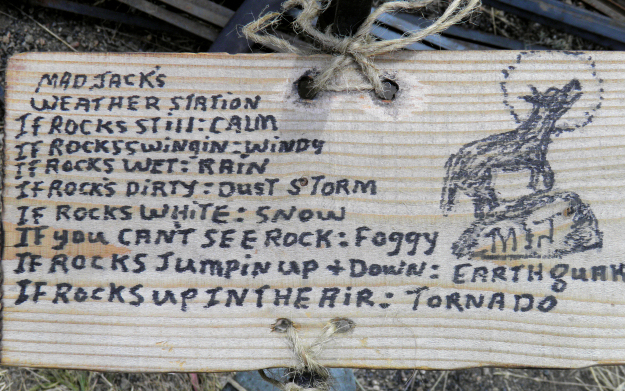 MAD JACK'S
WEATHER STATION
IF ROCKS STILL: CALM
IF ROCKS SWINGIN: WINDY
IF ROCKS WET: RAIN
IF ROCKS DIRTY: DUST STORM
IF ROCKS WHITE: SNOW
IF YOU CAN'T SEE ROCK: FOGGY
IF ROCKS JUMPIN UP + DOWN: EARTHQUAK
IF ROCKS UP IN THE AIR: TORNADO